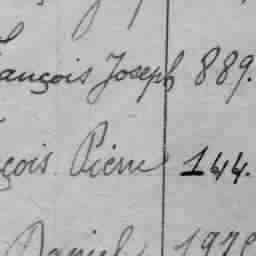 ançois Joseph 889.
çois Pierre 144.
Daniel 197